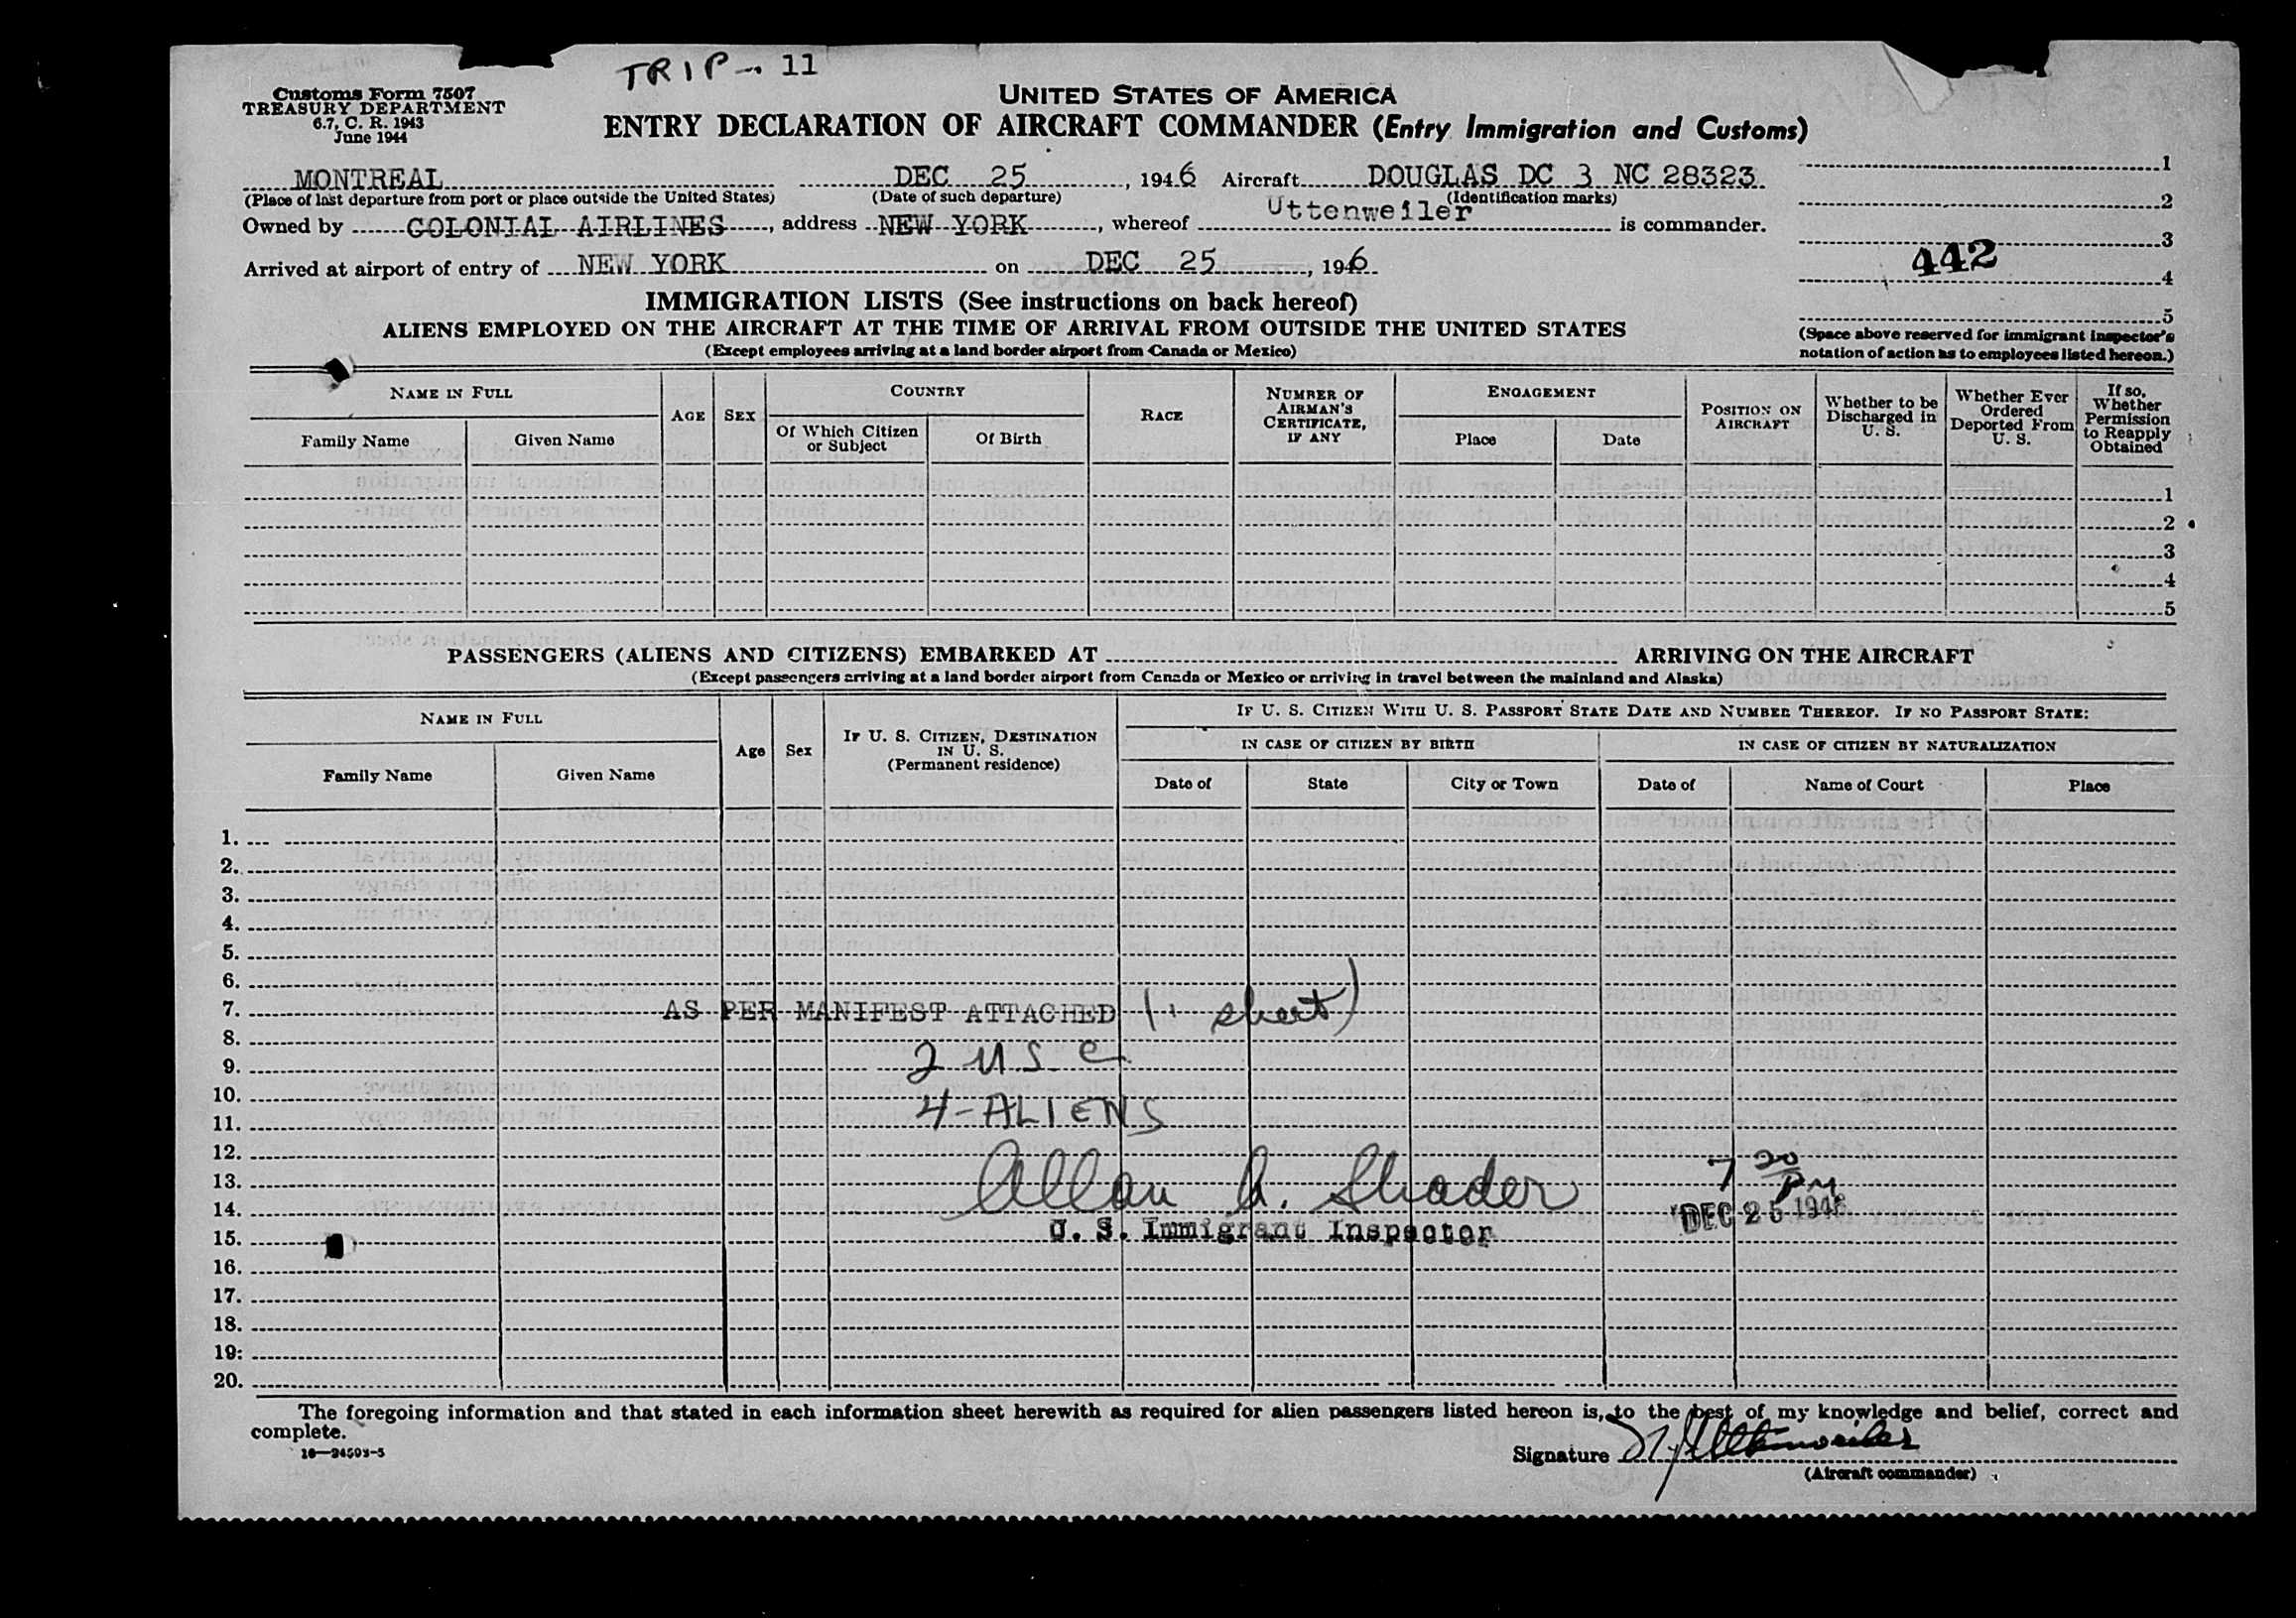 TRIP - 11
Customs Form 7507
TREASURY DEPARTMENT
6.7, C. R. 1943
June 1944
UNITED STATES OF AMERICA
ENTRY DECLARATION OF AIRCRAFT COMMANDER (Entry Immigration and Customs)
MONTREAL DEC 25, 1946 Aircraft DOUGLAS DC 3 NC 28323
(Place of last departure from port or place outside the United States) (Date of such departure) (Identification marks)
Owned by COLONIAL AIRLINES, address NEW YORK, whereof Uttenweiler is commander.
Arrived at airport of entry of NEW YORK on DEC 25, 1946
1
2
3
442
4
5
(Space above reserved for immigrant inspector's
notation of action as to employees listed hereon.)
IMMIGRATION LISTS (See instructions on back hereof)
ALIENS EMPLOYED ON THE AIRCRAFT AT THE TIME OF ARRIVAL FROM OUTSIDE THE UNITED STATES
(Except employees arriving at a land border airport from Canada or Mexico)
NAME IN FULL
Family Name
Given Name
AGE
SEX
COUNTRY
Of Which Citizen
or Subject
Of Birth
RACE
NUMBER OF
AIRMAN'S
CERTIFICATE,
IF ANY
ENGAGEMENT
Place
Date
POSITION ON
AIRCRAFT
Whether to be
Discharged in
U. S.
Whether Ever
Ordered
Deported From
U. S.
If so,
Whether
Permission
to Reapply
Obtained
1
2
3
4
5
PASSENGERS (ALIENS AND CITIZENS) EMBARKED AT ARRIVING ON THE AIRCRAFT
(Except passengers arriving at a land border airport from Canada or Mexico or arriving in travel between the mainland and Alaska)
NAME IN FULL
Family Name
Given Name
Age
Sex
IF U. S. CITIZEN, DESTINATION
IN U. S.
(Permanent residence)
IF U. S. CITIZEN WITH U. S. PASSPORT STATE DATE AND NUMBER THEREOF. IF NO PASSPORT STATE:
IN CASE OF CITIZEN BY BIRTH
IN CASE OF CITIZEN BY NATURALIZATION
Date of
State
City or Town
Date of
Name of Court
Place
1.
2.
3.
4.
5.
6.
7. AS PER MANIFEST ATTACHED (1 sheet)
8.
9. 2 USC
10.
11. 4-ALIENS
12.
13. Allan A. Shader 7 20 PM
14. DEC 25 1946
15. U. S. Immigrant Inspector
16.
17.
18.
19.
20.
The foregoing information and that stated in each information sheet herewith as required for alien passengers listed hereon is, to the best of my knowledge and belief, correct and
complete.
16—24593-5
Signature Uttenweiler
(Aircraft commander)